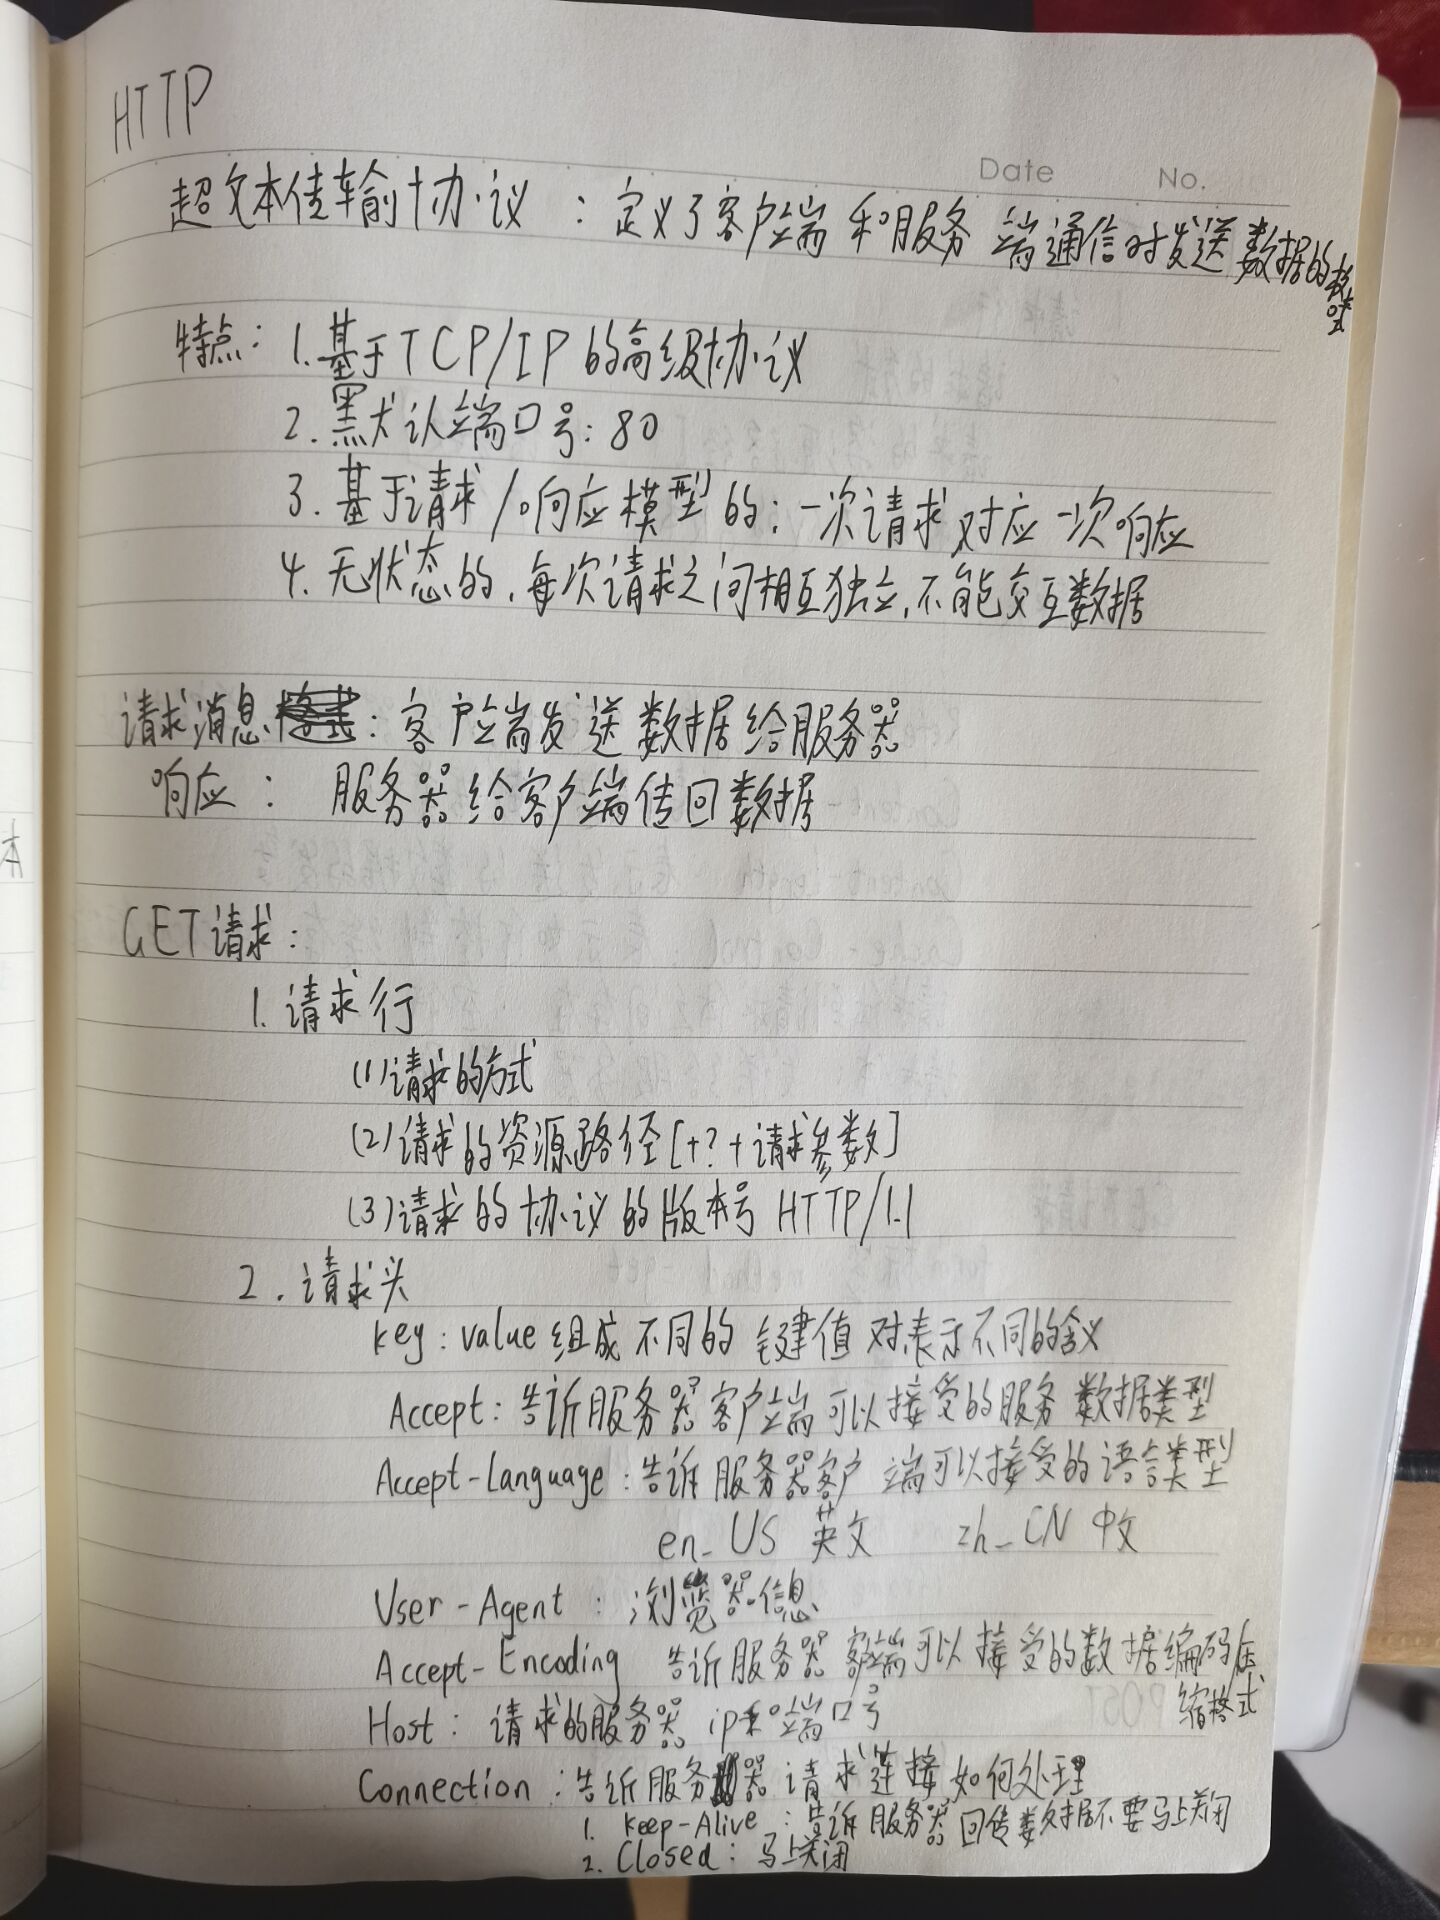 HTTP
Date No.
超文本传输协议：定义了客户端和服务端通信时发送数据的格式
特点：1.基于TCP/IP的高级协议
2.默认端口号：80
3.基于请求/响应模型的：一次请求对应一次响应
4.无状态的，每次请求之间相互独立，不能交互数据
请求消息：客户端发送数据给服务器
响应：服务器给客户端传回数据
GET请求：
1.请求行
(1)请求的方式
(2)请求的资源路径[+?+请求参数]
(3)请求的协议的版本号 HTTP/1.1
2.请求头
key:value组成 不同的键值对表示不同的含义
Accept：告诉服务器客户端可以接受的服务数据类型
Accept-Language：告诉服务器客户端可以接受的语言类型
en_US 英文 zh_CN 中文
User-Agent：浏览器信息
Accept-Encoding 告诉服务器客端可以接受的数据编码压缩格式
Host：请求的服务器ip和端口号
Connection：告诉服务器请求连接如何处理
1. Keep-Alive：告诉服务器回传数据不要马上关闭
2. Closed：马上关闭
本